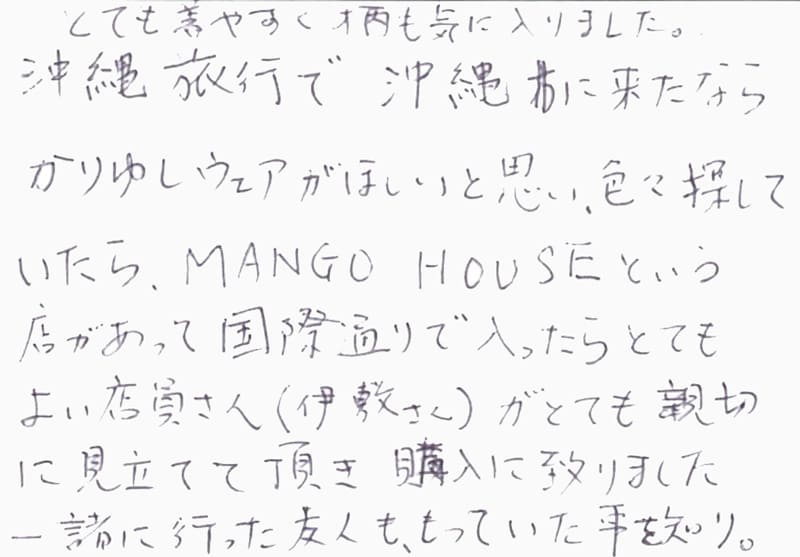 とても着やすく柄も気に入りました。
沖縄旅行で沖縄に来たなら
かりゆしウェアがほしいと思い、色々探して
いたら、MANGO HOUSEという
店があって国際通りで入ったらとても
よい店員さん(伊敷さん)がとても親切
に見立てて頂き購入に致りました
一諸に行った友人も、もっていた事を知り。